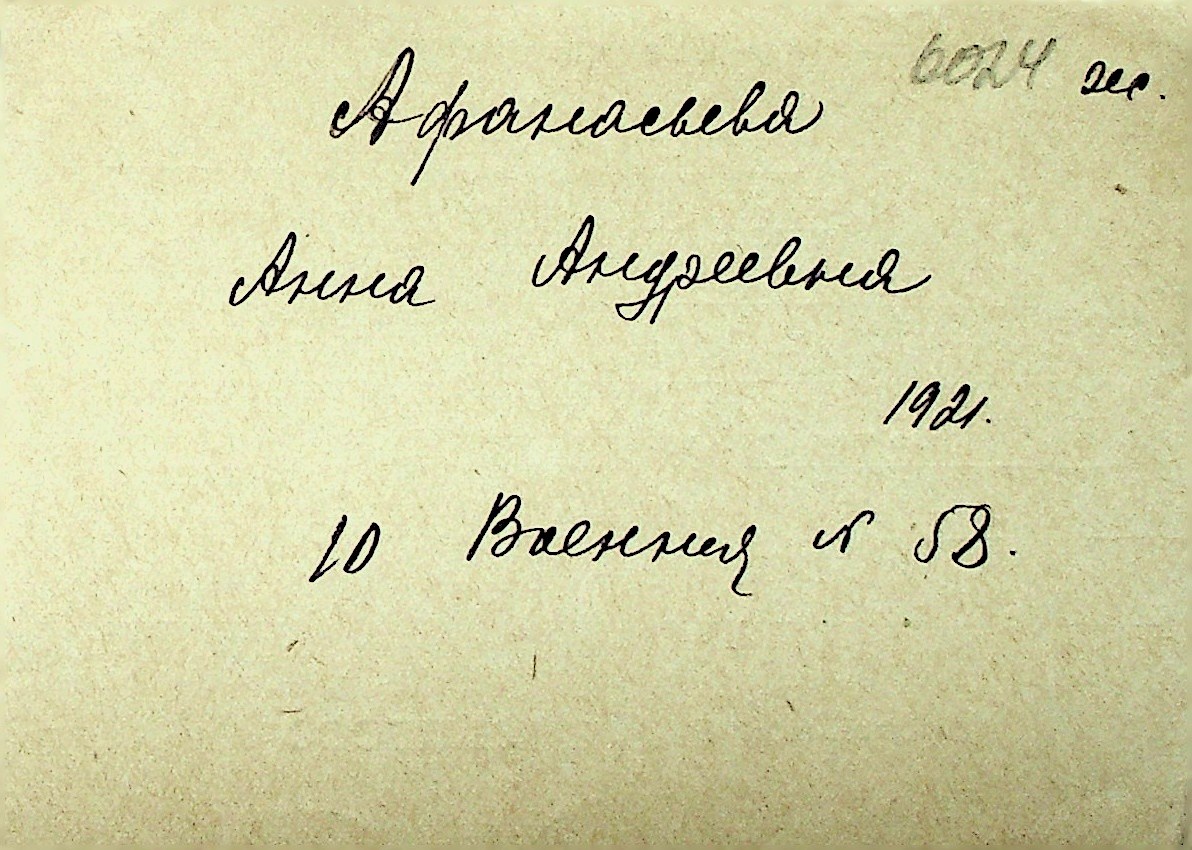 6024 ж.
Афанасьева
Анна Андреевна
1921.
10 Военная № 58.